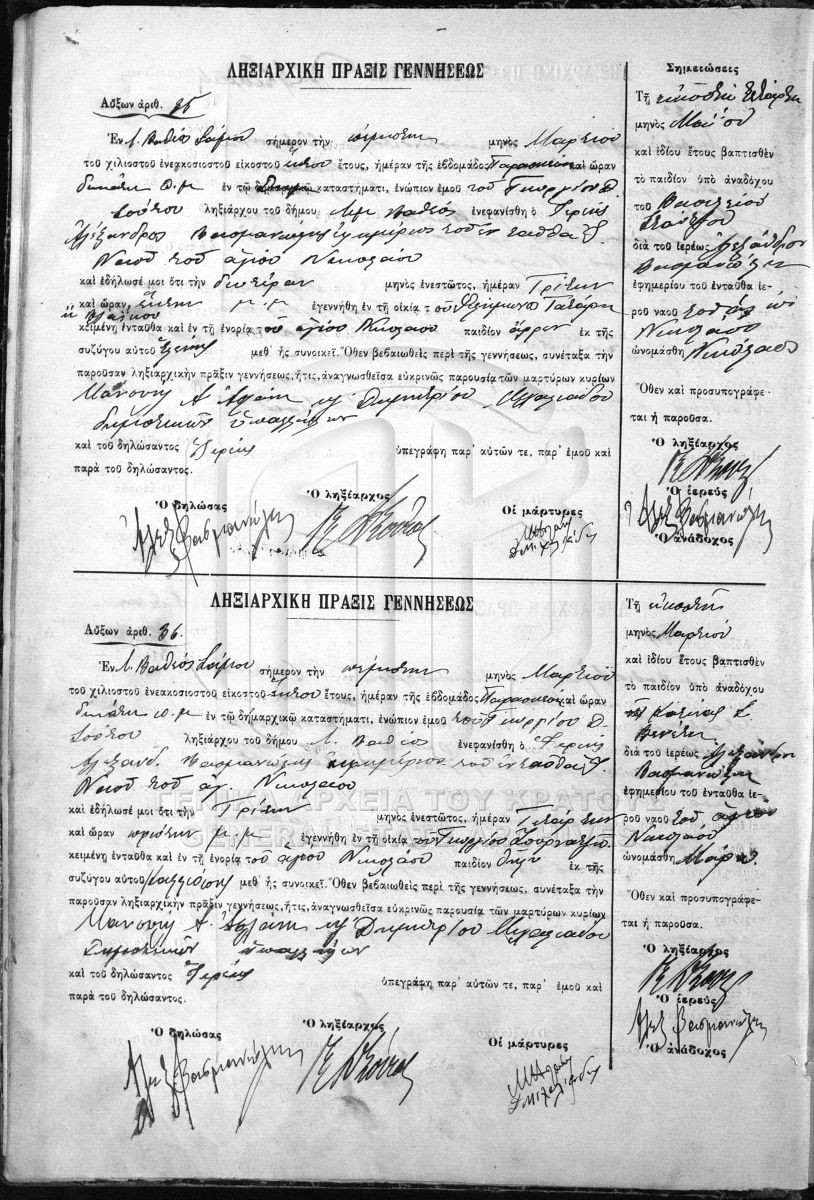 ΛΗΞΙΑΡΧΙΚΗ ΠΡΑΞΙΣ ΓΕΝΝΗΣΕΩΣ
Αὔξων ἀριθ. 35
Ἐν Λ. Βαθέος Σάμου σήμερον τὴν πέμπτην μηνὸς Μαρτίου
τοῦ χιλιοστοῦ ἐνεακοσιοστοῦ εἰκοστοῦ ἕκτου ἔτους, ἡμέραν τῆς ἑβδομάδος Παρασκευὴν καὶ ὥραν
δεκάτην π.μ ἐν τῷ καταστήματι, ἐνώπιον ἐμοῦ τοῦ Γεωργίου Δ.
Σούτου ληξιάρχου τοῦ δήμου Λιμ Βαθέος ἐνεφανίσθη ὁ Ἱερεὺς
Ἀλέξανδρος ἐφημέριος τοῦ ἐνταῦθα Ἱ.
Ναοῦ τοῦ ἁγίου Νικολάου
καὶ ἐδήλωσέ μοι ὅτι τὴν δευτέραν μηνὸς ἐνεστῶτος, ἡμέραν Τρίτην
καὶ ὥραν ἕκτην μ.μ ἐγεννήθη ἐν τῇ οἰκίᾳ τοῦ
κειμένη ἐνταῦθα καὶ ἐν τῇ ἐνορίᾳ τοῦ ἁγίου Νικολάου παιδίον ἄρρεν ἐκ τῆς
συζύγου αὐτοῦ Ἑλένης μεθ' ἧς συνοικεῖ. Ὅθεν βεβαιωθεὶς περὶ τῆς γεννήσεως, συνέταξα τὴν
παροῦσαν ληξιαρχικὴν πρᾶξιν γεννήσεως, ἥτις, ἀναγνωσθεῖσα εὐκρινῶς παρουσίᾳ τῶν μαρτύρων κυρίων
Μανουὴλ Α. καὶ Δημητρίου Μιχαλιάδου
δημοτικῶν ὑπαλλήλων
καὶ τοῦ δηλώσαντος Ἱερέως ὑπεγράφη παρ' αὐτῶν τε, παρ' ἐμοῦ καὶ
παρὰ τοῦ δηλώσαντος.
Ὁ δηλώσας
Ὁ ληξίαρχος
Οἱ μάρτυρες
Σημειώσεις
Τῇ εἰκοστῇ τετάρτῃ
μηνὸς Μαΐου
καὶ ἰδίου ἔτους βαπτισθὲν
τὸ παιδίον ὑπὸ ἀναδόχου
τοῦ Βασιλείου
διὰ τοῦ ἱερέως Ἀλεξάνδρου
ἐφημερίου τοῦ ἐνταῦθα ἱε-
ροῦ ναοῦ τοῦ ἁγίου
Νικολάου
ὠνομάσθη Νικόλαος
Ὅθεν καὶ προσυπογράφε-
ται ἡ παροῦσα.
Ὁ ληξίαρχος
Ὁ ἱερεύς
Ὁ ἀνάδοχος
ΛΗΞΙΑΡΧΙΚΗ ΠΡΑΞΙΣ ΓΕΝΝΗΣΕΩΣ
Αὔξων ἀριθ. 36.
Ἐν Λ. Βαθέος Σάμου σήμερον τὴν πέμπτην μηνὸς Μαρτίου
τοῦ χιλιοστοῦ ἐνεακοσιοστοῦ εἰκοστοῦ ἕκτου ἔτους, ἡμέραν τῆς ἑβδομάδος Παρασκευὴν καὶ ὥραν
δεκάτην π.μ ἐν τῷ δημαρχικῷ καταστήματι, ἐνώπιον ἐμοῦ τοῦ Γεωργίου Δ.
Σούτου ληξιάρχου τοῦ δήμου Λ. Βαθέος ἐνεφανίσθη ὁ Ἱερεὺς
Ἀλέξανδ. ἐφημέριος τοῦ ἐνταῦθα Ἱ.
Ναοῦ τοῦ ἁγ. Νικολάου
καὶ ἐδήλωσέ μοι ὅτι τὴν Τρίτην μηνὸς ἐνεστῶτος, ἡμέραν Τετάρτην
καὶ ὥραν πρώτην μ.μ ἐγεννήθη ἐν τῇ οἰκίᾳ τοῦ Γεωργίου
κειμένη ἐνταῦθα καὶ ἐν τῇ ἐνορίᾳ τοῦ ἁγίου Νικολάου παιδίον θῆλυ ἐκ τῆς
συζύγου αὐτοῦ Καλλιόπης μεθ' ἧς συνοικεῖ. Ὅθεν βεβαιωθεὶς περὶ τῆς γεννήσεως, συνέταξα τὴν
παροῦσαν ληξιαρχικὴν πρᾶξιν γεννήσεως, ἥτις, ἀναγνωσθεῖσα εὐκρινῶς παρουσίᾳ τῶν μαρτύρων κυρίων
Μανουὴλ Α. καὶ Δημητρίου Μιχαλιάδου
δημοτικῶν ὑπαλλήλων
καὶ τοῦ δηλώσαντος Ἱερέως ὑπεγράφη παρ' αὐτῶν τε, παρ' ἐμοῦ καὶ
παρὰ τοῦ δηλώσαντος.
Ὁ δηλώσας
Ὁ ληξίαρχος
Οἱ μάρτυρες
Τῇ εἰκοστῇ
μηνὸς Μαρτίου
καὶ ἰδίου ἔτους βαπτισθὲν
τὸ παιδίον ὑπὸ ἀναδόχου
διὰ τοῦ ἱερέως Ἀλεξάνδρου
ἐφημερίου τοῦ ἐνταῦθα ἱε-
ροῦ ναοῦ τοῦ ἁγίου
Νικολάου
ὠνομάσθη Μαρία
Ὅθεν καὶ προσυπογράφε-
ται ἡ παροῦσα.
Ὁ ληξίαρχος
Ὁ ἱερεύς
Ὁ ἀνάδοχος
ΓΕΝΙΚΑ ΑΡΧΕΙΑ ΤΟΥ ΚΡΑΤΟΥΣ